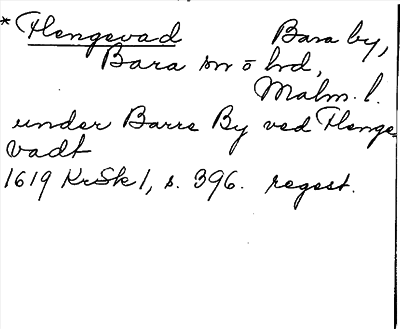 *Flengevad Bara by,
Bara sn o hd,
Malm. l.
under Barre By ved Flenge
vadt
1619 KrSk 1, s. 396. regest.